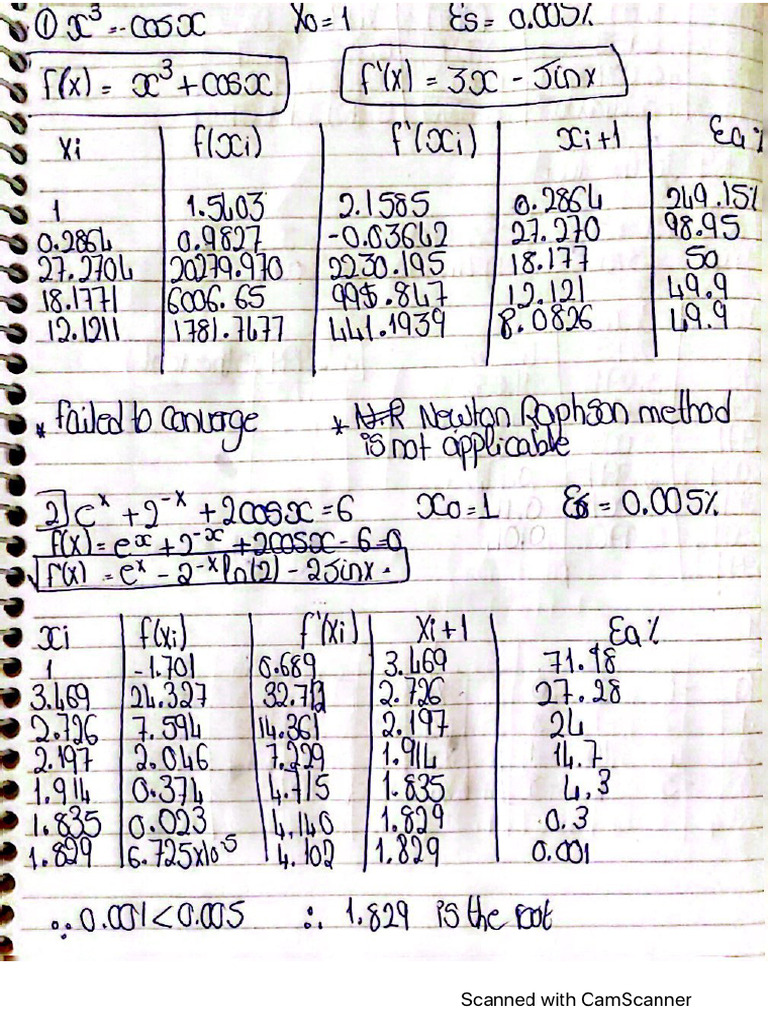 ① x³ = -cosx X₀ = 1 Es = 0.005%
f(x) = x³ + cosx f'(x) = 3x - sinx
Xi f(xi) f'(xi) xi+1 Ea%
1 1.5403 2.1585 0.2864 249.15%
0.2864 0.9827 -0.03642 27.270 98.95
27.2704 20279.970 2230.195 18.177 50
18.1771 6006.65 995.847 12.121 49.9
12.1211 1781.7677 441.1939 8.0826 49.9
* failed to converge * N.R Newton Raphson method
is not applicable
2) eˣ + 2⁻ˣ + 2cosx = 6 x₀ = 1 Es = 0.005%
f(x) = eˣ + 2⁻ˣ + 2cosx - 6 = 0
f'(x) = eˣ - 2⁻ˣ ln(2) - 2sinx.
xi f(xi) f'(xi) Xi+1 Ea%
1 -1.701 0.689 3.469 71.18
3.469 24.327 32.712 2.726 27.28
2.726 7.594 14.361 2.197 24
2.197 2.046 7.229 1.914 14.7
1.914 0.374 4.715 1.835 4.3
1.835 0.023 4.140 1.829 0.3
1.829 6.725x10⁻⁵ 4.102 1.829 0.001
∵ 0.001 < 0.005 ∴ 1.829 is the root
Scanned with CamScanner